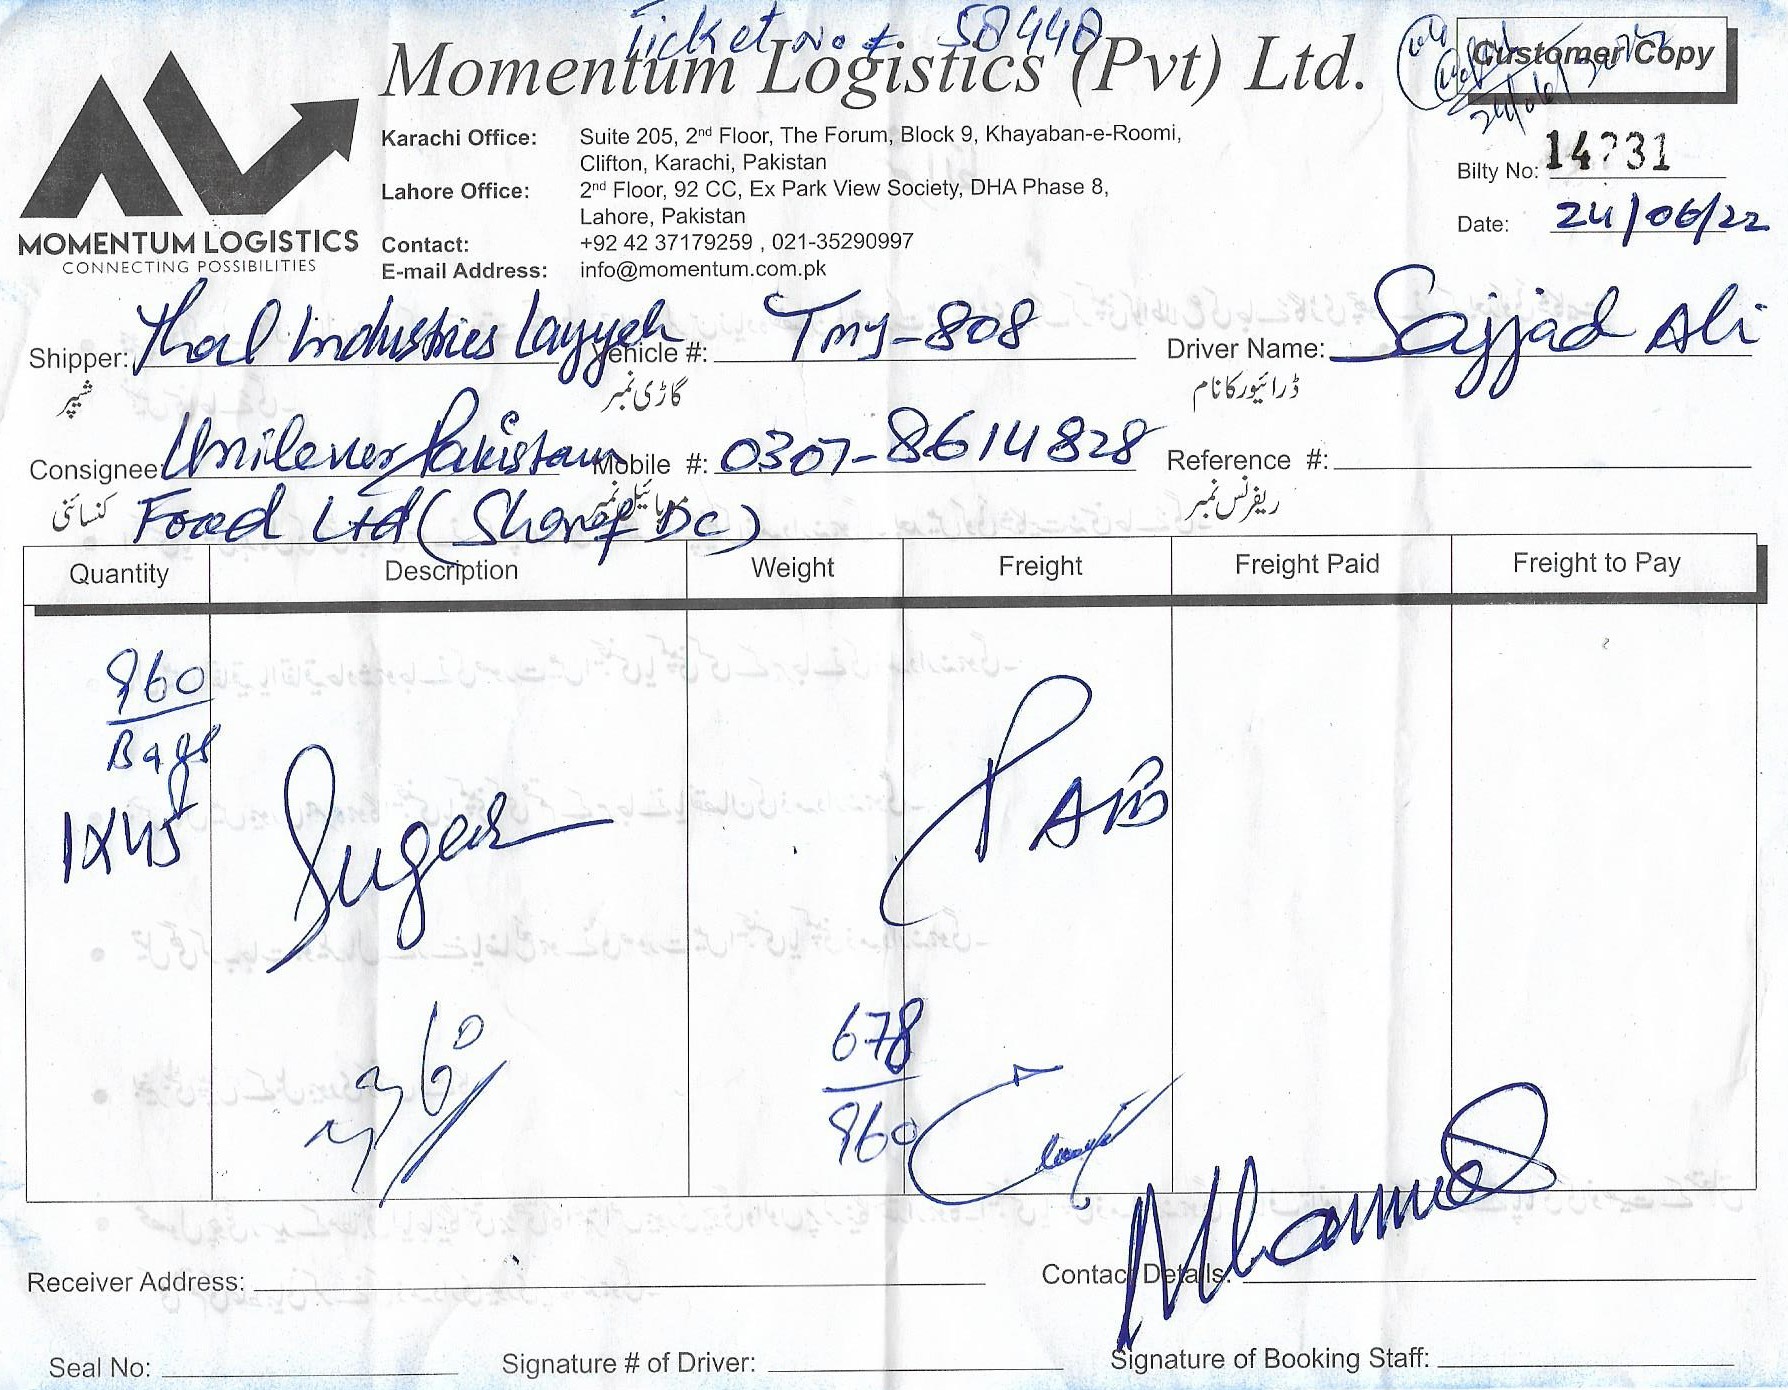 Ticket No # 58448
Momentum Logistics (Pvt) Ltd.
Customer Copy
24/06/2022
MOMENTUM LOGISTICS
CONNECTING POSSIBILITIES
Karachi Office: Suite 205, 2nd Floor, The Forum, Block 9, Khayaban-e-Roomi,
Clifton, Karachi, Pakistan
Lahore Office: 2nd Floor, 92 CC, Ex Park View Society, DHA Phase 8,
Lahore, Pakistan
Contact: +92 42 37179259 , 021-35290997
E-mail Address: info@momentum.com.pk
Bilty No: 14231
Date: 24/06/22
Shipper: Thal Industries Layyah Vehicle #: TMJ-808 Driver Name: Sajjad Ali
شیپر گاڑی نمبر ڈرائیور کا نام
Consignee Unilever Pakistan Mobile #: 0307-8614828 Reference #:
کنسائنی موبائیل نمبر ریفرنس نمبر
Food Ltd (Sharaf DC)
Quantity Description Weight Freight Freight Paid Freight to Pay
960
Bags
1x45 Sugar PAID
678
960
Receiver Address: Contact Details:
Seal No: Signature # of Driver: Signature of Booking Staff: